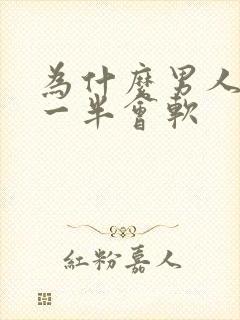 為什麼男人
一半會軟
紅粉嘉人